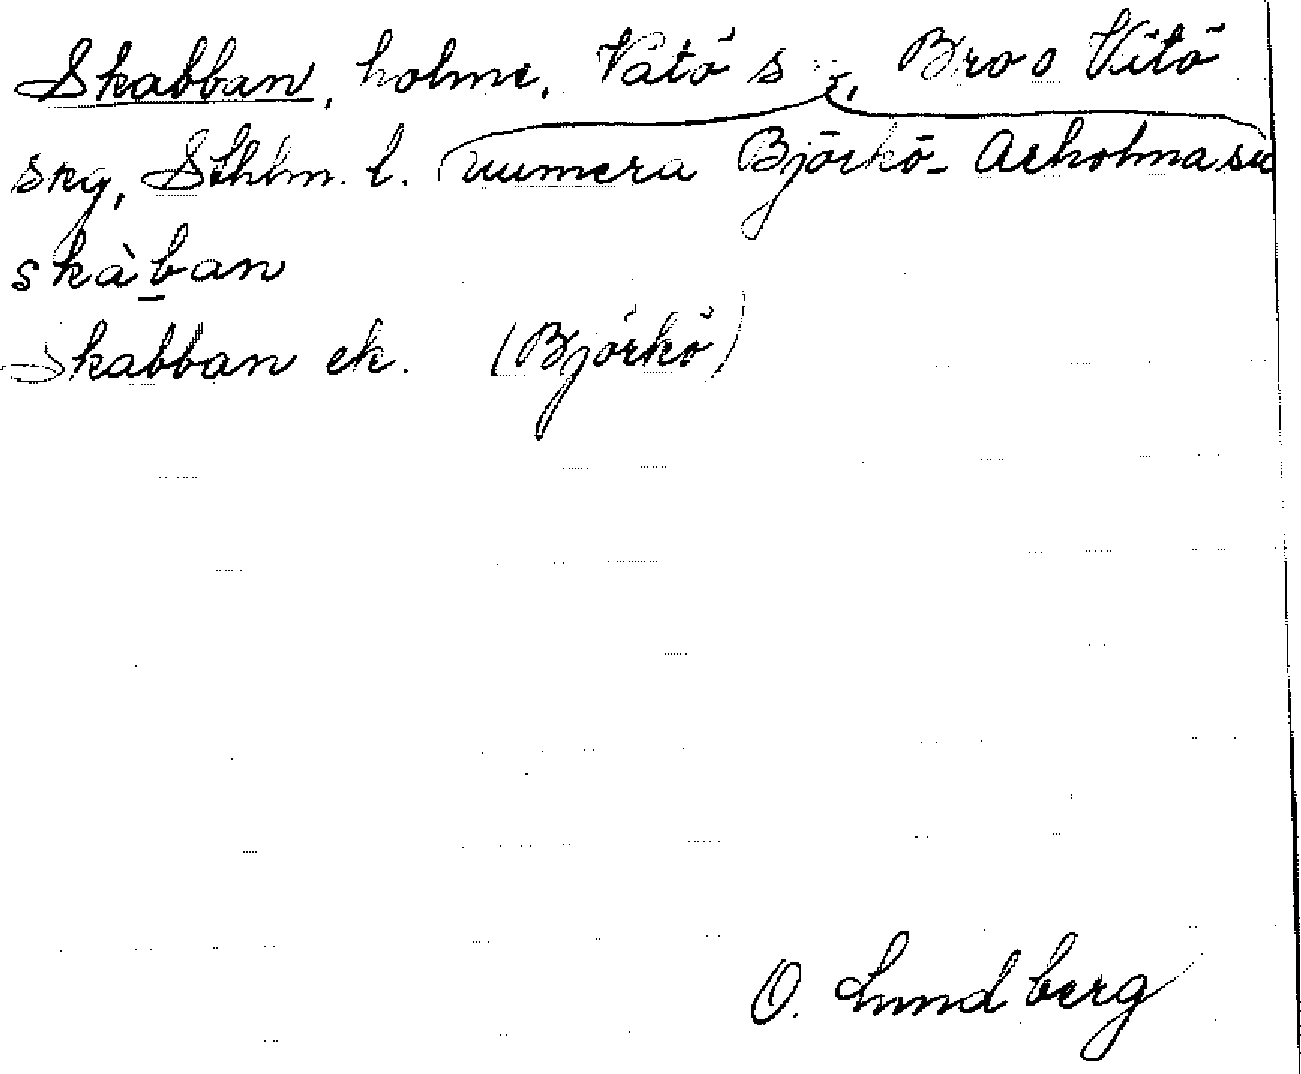 Skabban, holme, Vätö s:n, Bro o Vätö
skg, Sthlm. l. numera Björkö-Arholma sn
skàban
Skabban ek. (Björkö)
O. Lundberg